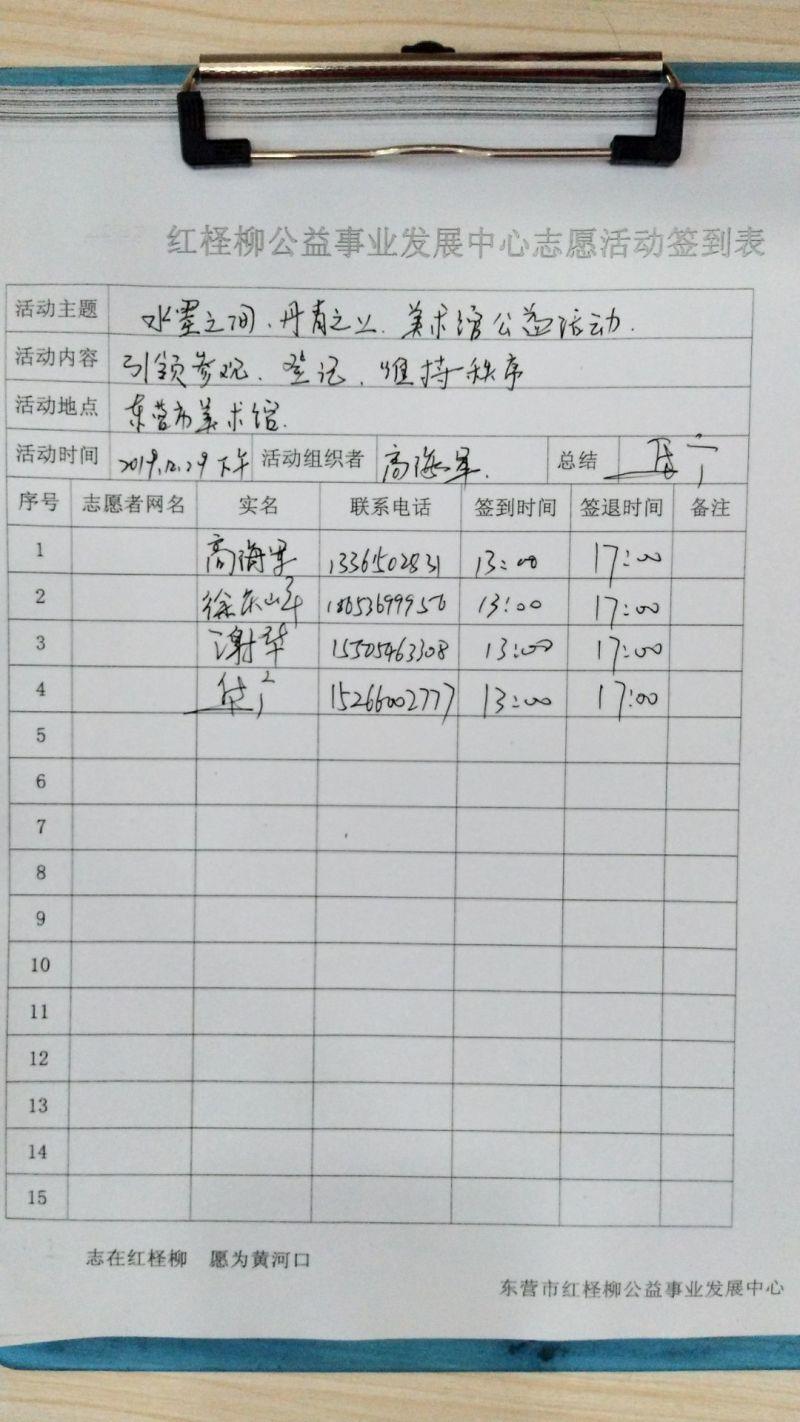 红柽柳公益事业发展中心志愿活动签到表
活动主题 水墨之间、丹青之上 美术馆公益活动.
活动内容 引领参观、登记、维持秩序
活动地点 东营市美术馆.
活动时间 2019.12.29下午 活动组织者 高海军. 总结
序号 志愿者网名 实名 联系电话 签到时间 签退时间 备注
1 高海军 13361502831 13:00 17:00
2 徐东峰 18653699956 13:00 17:00
3 谢华 15505463308 13:00 17:00
4 15266002777 13:00 17:00
5
6
7
8
9
10
11
12
13
14
15
志在红柽柳 愿为黄河口
东营市红柽柳公益事业发展中心